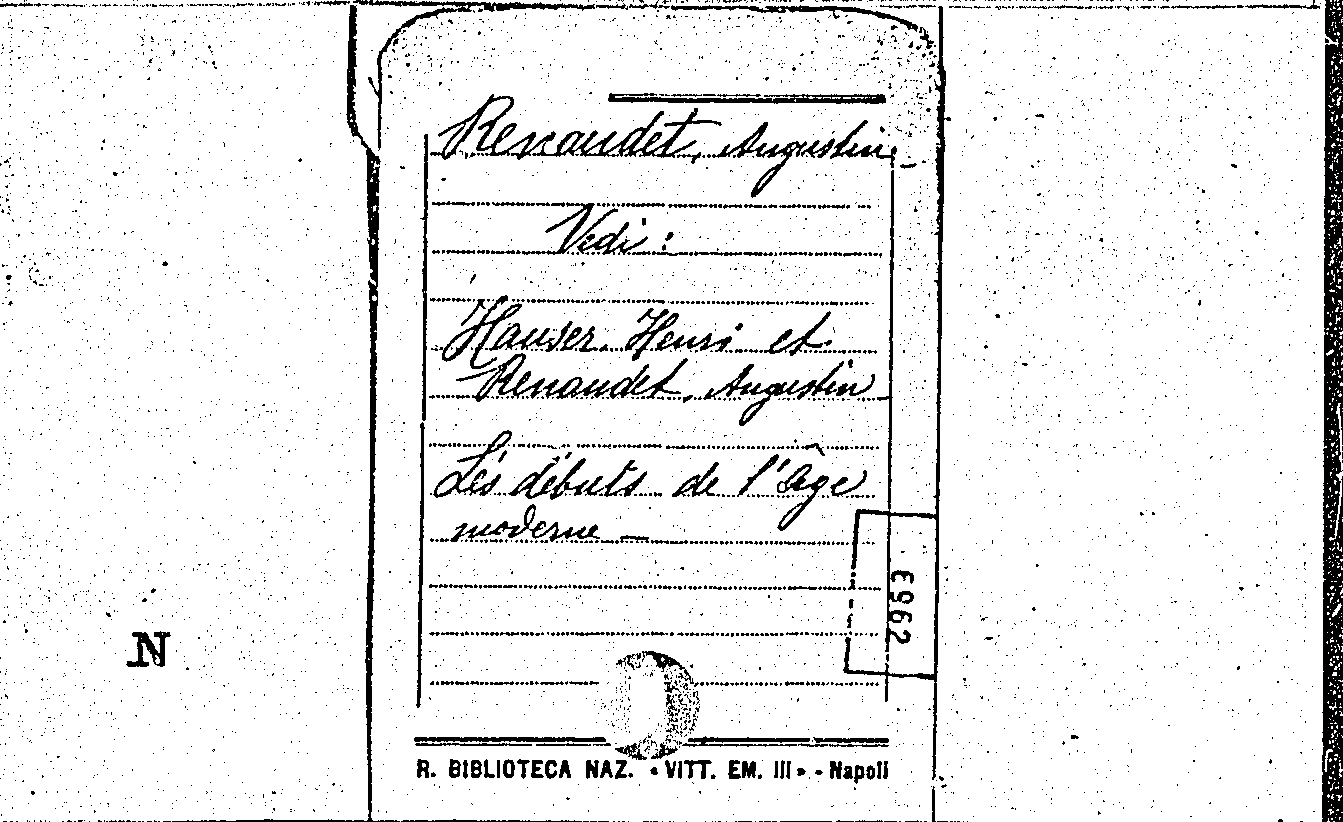 Renaudet, Augustin.
Vedi:
Hauser, Henri et
Renaudet, Augustin
Les débuts de l'âge
moderne —
N
R. BIBLIOTECA NAZ. « VITT. EM. III » - Napoli